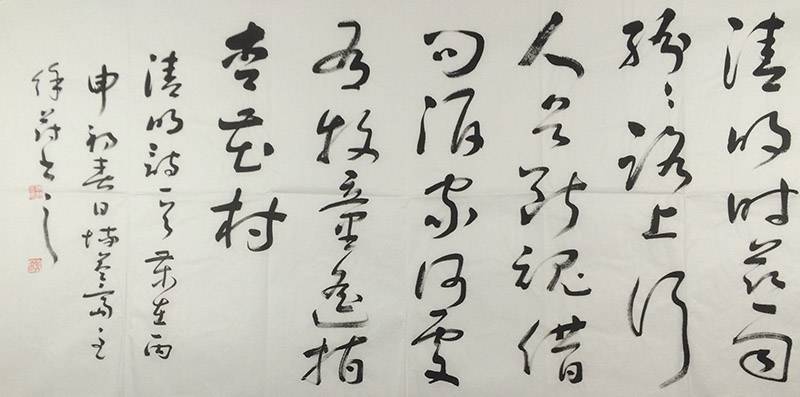 清明时节雨
纷纷路上行
人欲断魂借
问酒家何处
有牧童遥指
杏花村
清明诗一首岁在丙
申初春日斋主
徐书之